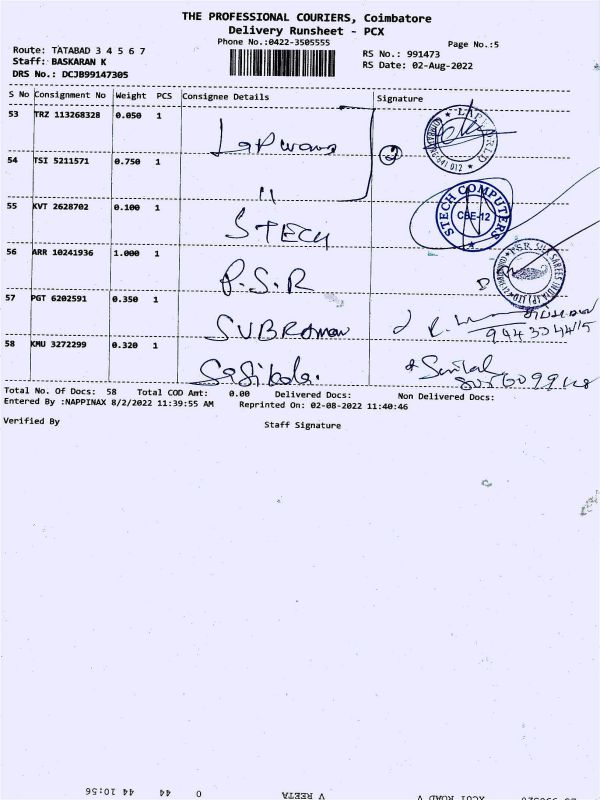 THE PROFESSIONAL COURIERS, Coimbatore
Delivery Runsheet - PCX
Phone No.:0422-3505555
Page No.:5
Route: TATABAD 3 4 5 6 7
RS No.: 991473
Staff: BASKARAN K
RS Date: 02-Aug-2022
DRS No.: DCJB99147305
S No Consignment No Weight PCS Consignee Details Signature
53 TRZ 113268328 0.050 1
54 TSI 5211571 0.750 1 "
55 KVT 2628702 0.100 1 STECH STECH COMPUTERS CBE-12
56 ARR 10241936 1.000 1 P.S.R
57 PGT 6202591 0.350 1 SUBRaman
58 KMU 3272299 0.320 1 Sasikala.
Total No. Of Docs: 58 Total COD Amt: 0.00 Delivered Docs: Non Delivered Docs:
Entered By :NAPPINAX 8/2/2022 11:39:55 AM Reprinted On: 02-08-2022 11:40:46
Verified By Staff Signature
V REETA 0 44 44 10:56